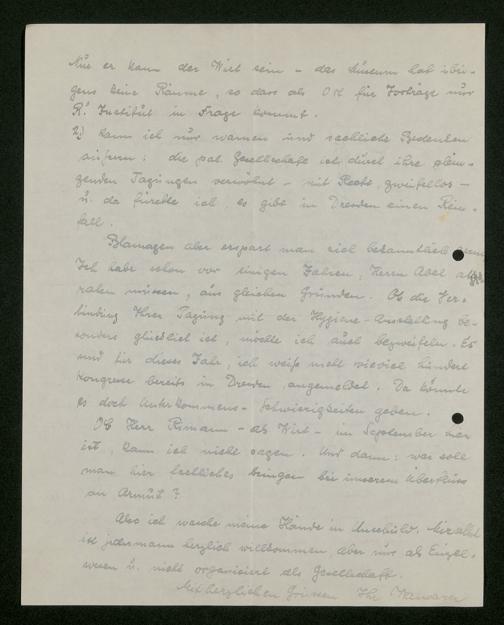 Nur er kann der Wirt sein – das Museum hat übri-
gens keine Räume, so dass als Ort für Vorträge nur
R.' Institut in Frage kommt.
2) kann ich nur warnen und sachliche Bedenken
äussern: die pal. Gesellschaft ist durch ihre glän-
zenden Tagungen verwöhnt – mit Recht, zweifellos –
u. da fürchte ich, es gibt in Dresden einen Rein-
fall.
Blamagen aber erspart man sich bekanntlich gern
Ich habe schon vor einigen Jahren, Herrn Abel ab-
raten müssen, aus gleichen Gründen. Ob die Ver-
bindung Ihrer Tagung mit der Hygiene-Ausstellung be-
sonders glücklich ist, möchte ich auch bezweifeln. Es
sind für dieses Jahr, ich weiß nicht wieviel hundert
Kongresse bereits in Dresden angemeldet. Da könnte
es doch Unterkommens-Schwierigkeiten geben.
Ob Herr Rimann – als Wirt – im September hier
ist, kann ich nicht sagen. Und dann: was soll
man hier festliches bringen bei unserem Überfluss
an Armut?
Also ich wasche meine Hände in Unschuld. Mir selbst
ist jedermann herzlich willkommen, aber nur als Einzel-
wesen u. nicht organisiert als Gesellschaft.
Mit herzlichen Grüssen Ihr